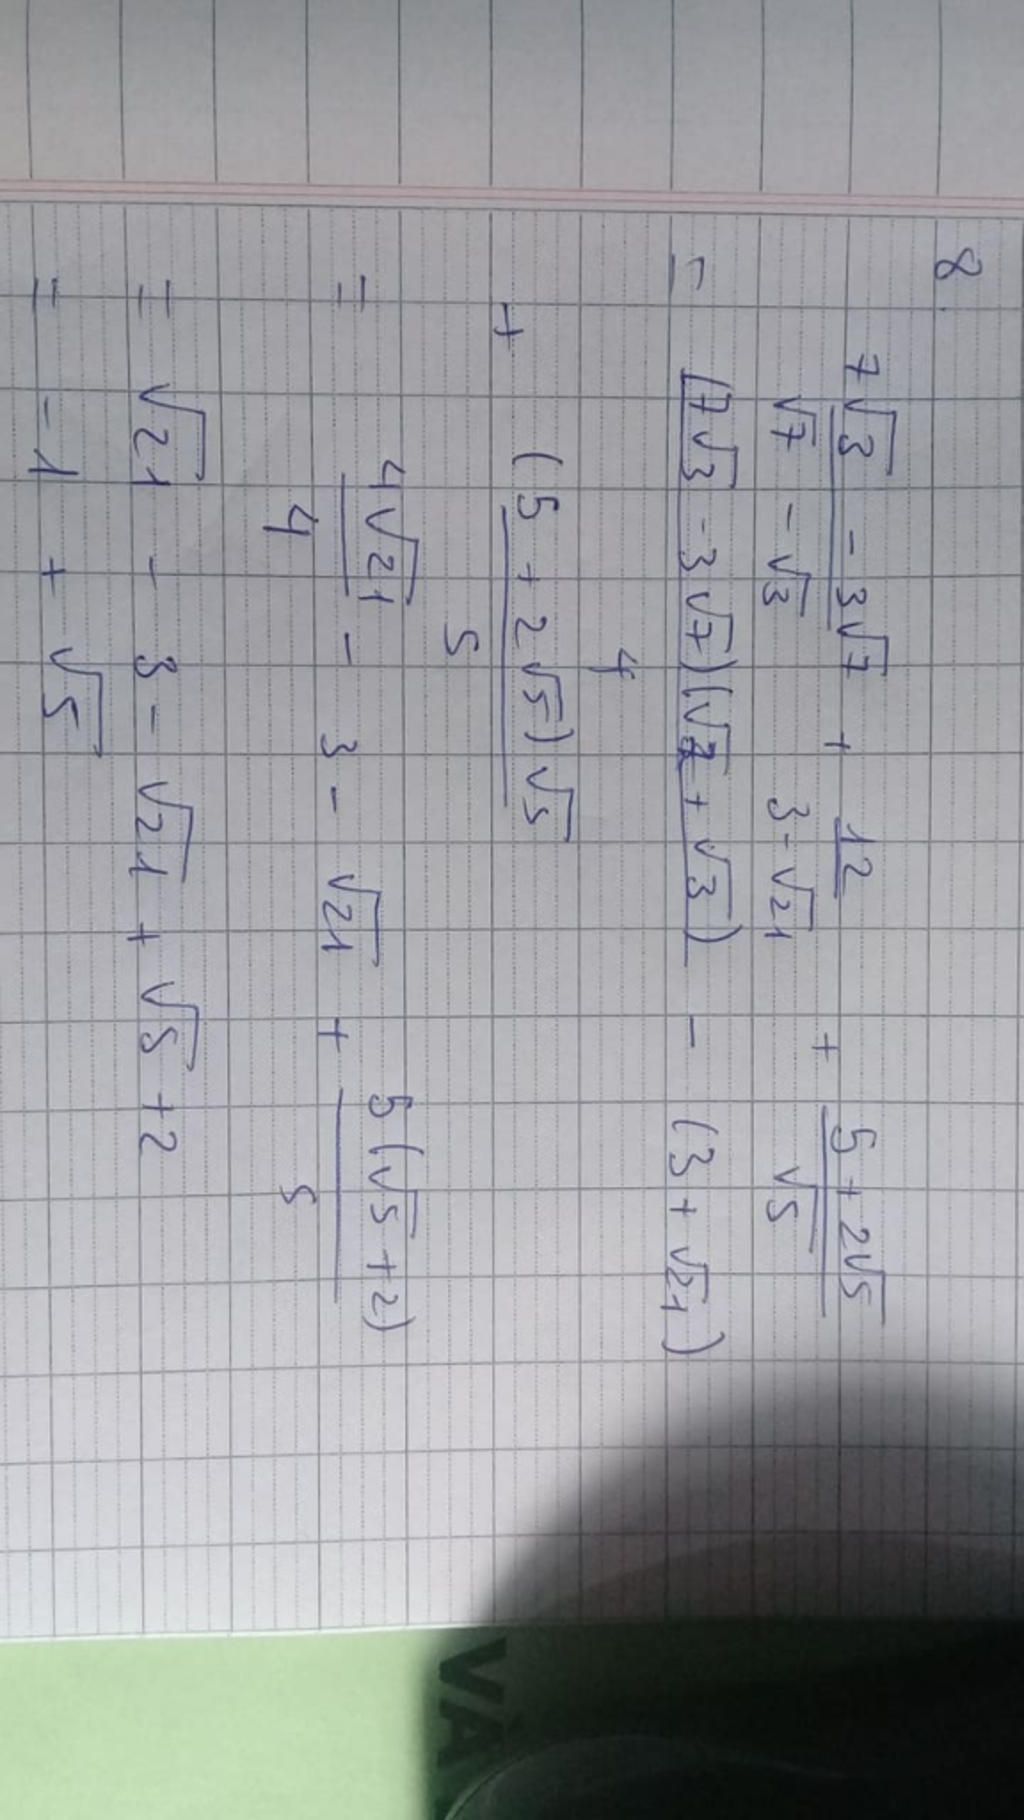 8.
7√3 - 3√7 / √7 - √3 + 12 / 3 - √21 + 5 + 2√5 / √5
= (7√3 - 3√7)(√7 + √3) / 4 - (3 + √21)
+ (5 + 2√5)√5 / 5
= 4√21 / 4 - 3 - √21 + 5(√5 + 2) / 5
= √21 - 3 - √21 + √5 + 2
= -1 + √5
VA